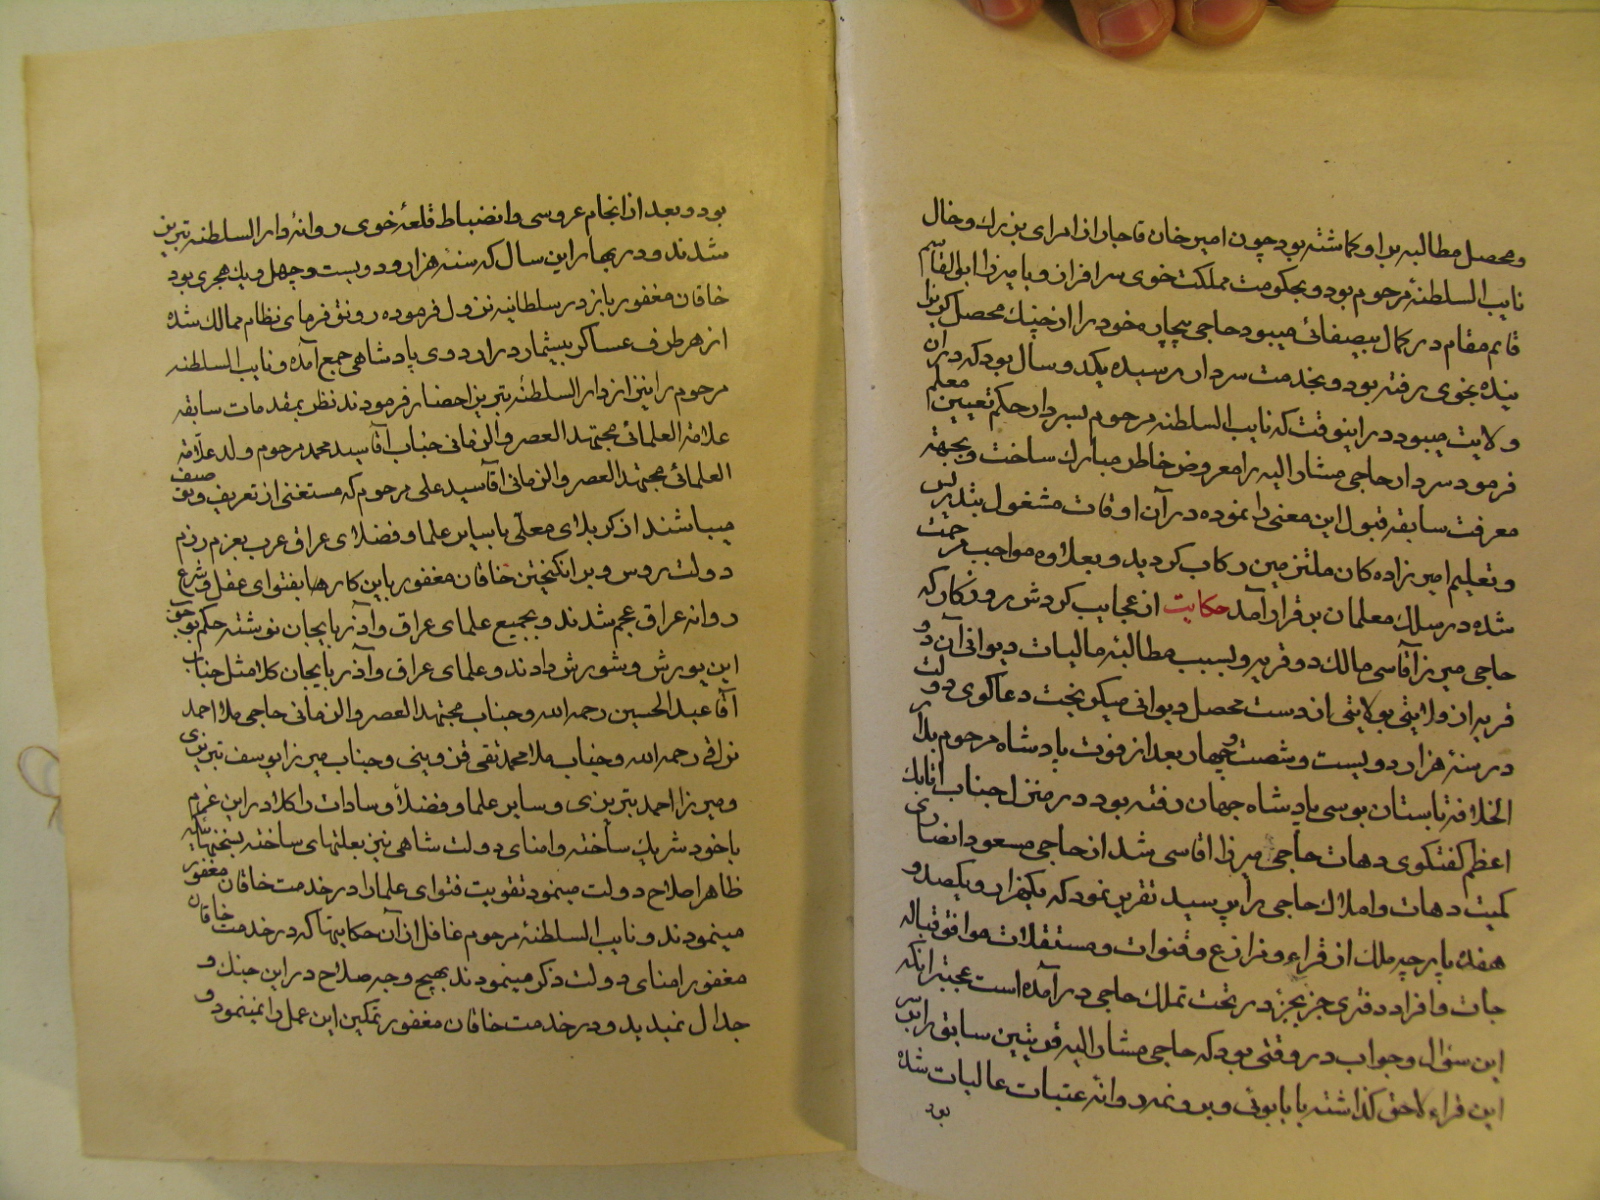 و محصل مطالبه بر او کماشته بود چون امیر خان قاجار از امرای بزرك و خال
نایب السلطنهٔ مرحوم بود و بحکومت مملکت خوی سرافراز و با میرزا ابوالقاسم
قائم مقام در کمال بیصفائی میبود حاجی بیچاره خود را از چنك محصل کریزا
نیده بخوی رفته بود و بخدمت سردار رسیده یکدو سال بود که در ان
ولایت میبود در اینوقت که نایب السلطنه مرحوم بسردار حکم تعیین معلم
فرمود سردار حاجی مشار الیه را معروض خاطر مبارك ساخت و بجهته
معرفت سابقه قبول این معنی را نموده در آن اوقات مشغول بتدریس
و تعلیم امیرزاده کان ملتزمین رکاب کردید و بعلاوه مواجب مرحمت
شده در سلك معلمان برقرار آمد حکایت از عجایب کردش روزکار که
حاجی میرزا آقاسی مالك دو قریه و بسبب مطالبهٔ مالیات دیوانی آن دو
قریه از ولایتی بولایتی از دست محصل دیوانی میکریخت دعاکوی دولت
در سنهٔ هزار و دویست و شصت و چهار بعد از فوت پادشاه مرحوم بدار
الخلافه تا بستان بوسی پادشاه جهان رفته بود در منزل جناب اتابك
اعظم کفتکوی دهات حاجی میرزا اقاسی شد از حاجی مسعود انصاری
کمیت دهات و املاك حاجی را پرسید تقریر نمود که یکهزار و یکصد و
هفده پارچه ملك از قراء و مزارع و قنوات و مستقلات موافق قباله
جات و افراد دفتری جز بجزء در تحت تملك حاجی در آمده است عجبتر انکه
این سؤال و جواب در وقتی بود که حاجی مشار الیه قریتین سابق را بر
این قراء لاحق کذاشته با بابونی و برونمد روانهٔ عتبات عالیات شده
بود
بود و بعد از انجام عروسی و انضباط قلعهٔ خوی روانهٔ دار السلطنه تبریز
شدند و در بهار این سال که سنه هزار و دویست و چهل و یك هجری بود
خاقان مغفور باز در سلطانیه نزول فرموده رونق فرمای نظام ممالك شده
از هر طرف عساکر بیشمار در اردوی پادشاهی جمع آمده و نایب السلطنه
مرحوم را نیز از دار السلطنهٔ تبریز احضار فرمودند نظر بمقدمات سابقه
علامة العلمائی مجتهد العصر و الزمانی جناب آقا سید محمد مرحوم ولد علّامة
العلمائی مجتهد العصر و الزمانی آقا سید علی مرحوم که مستغنی از تعریف و توصیف
میباشند از کربلای معلّی با سایر علما و فضلای عراق عرب بعزم رزم
دولت روس و برانکیختن خاقان مغفور باین کارها بفتوای عقل و شرع
روانه عراق عجم شدند و بجمیع علمای عراق و آذربایجان نوشته حکم بوجوب
این یورش و شورش دادند و علمای عراق و آذربایجان کلا مثل جناب
آقا عبد الحسین رحمه الله و جناب مجتهد العصر و الزمانی حاجی ملا احمد
نراقی رحمه الله و جناب ملا محمد تقی قزوینی و جناب میرزا یوسف تبریزی
و میرزا احمد تبریزی و سایر علما و فضلا و سادات را کلا در این عزم
با خود شریك ساخته و امنای دولت شاهی نیز بعلتهای ساخته بسخنهائیکه
ظاهرا صلاح دولت مینمود تقویت فتوای علما را در خدمت خاقان مغفور
مینمودند و نایب السلطنهٔ مرحوم غافل از آن حکایتها که در خدمت خاقان
مغفور امنای دولت ذکر مینمودند بهیچ وجه صلاح در این جنك و
جدال نمیدید و در خدمت خاقان مغفور تمکین این عمل را نمینمود و